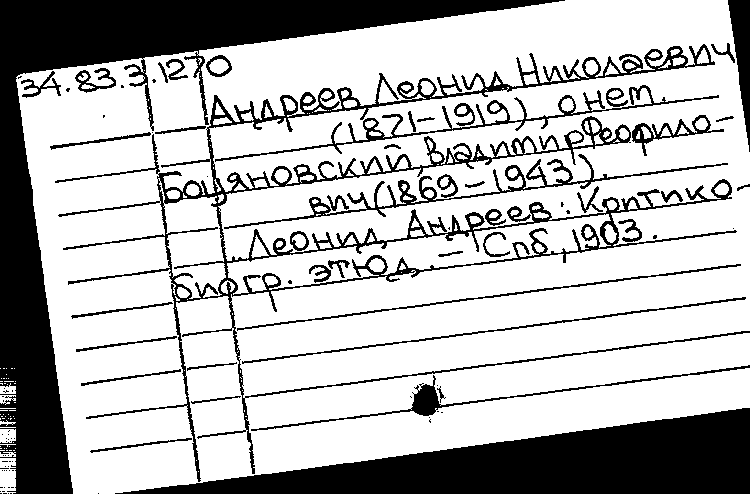 34.83.3.1270
Андреев, Леонид Николаевич
(1871-1919), о нем.
Боцяновский, Владимир Феофило-
вич (1869-1943).
..Леонид Андреев: Критико-
биогр. этюд. - Спб., 1903.